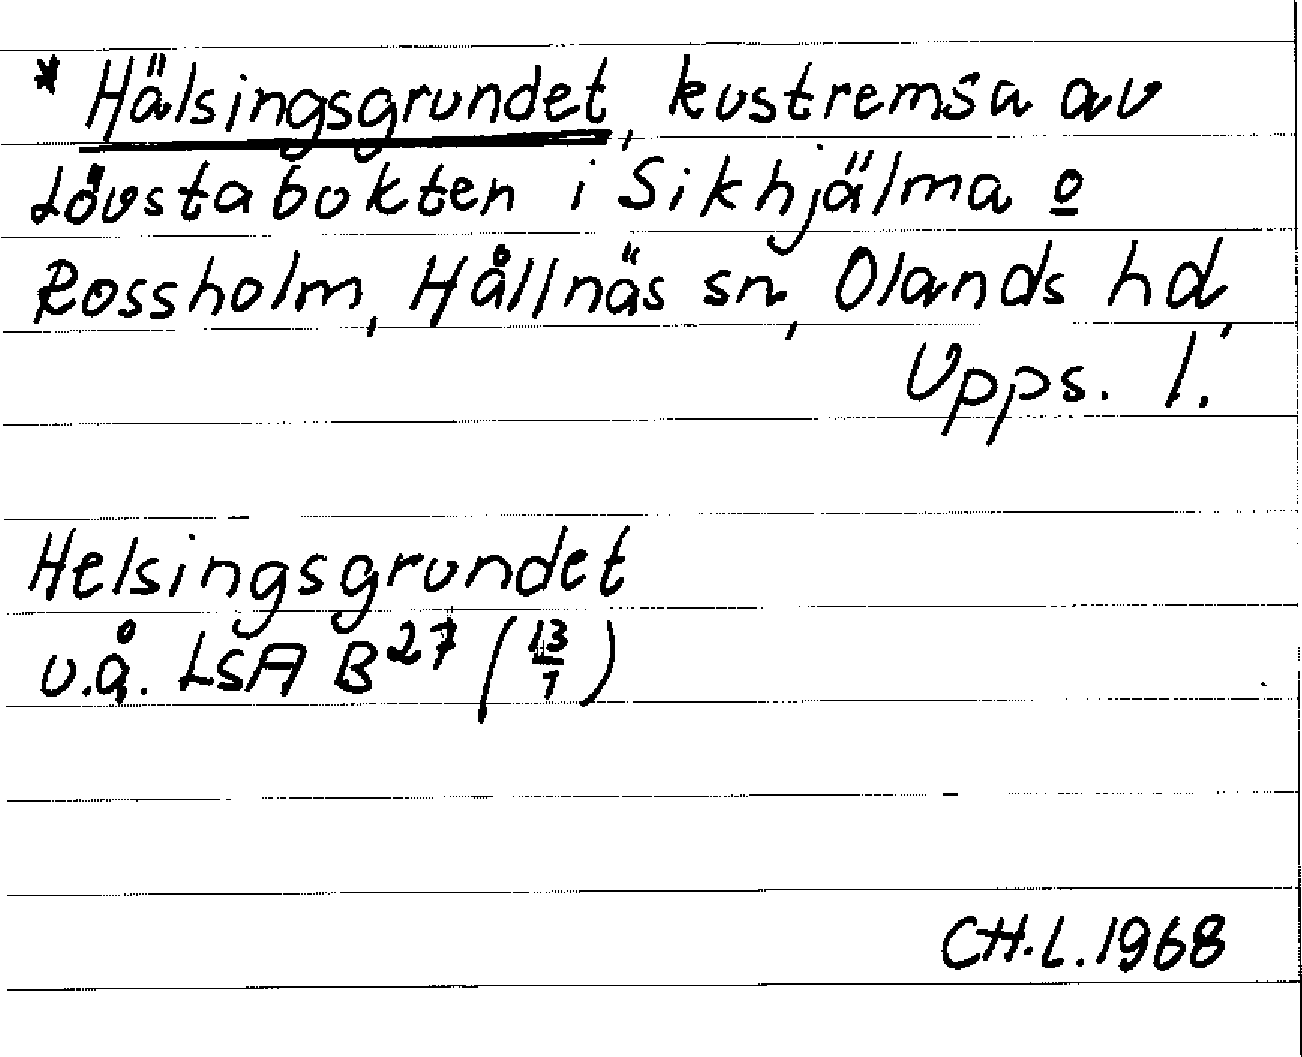 * Hälsingsgrundet, kustremsa av
Lövstabukten i Sikhjälma o
Rossholm, Hållnäs sn, Olands hd,
Upps. l.
Helsingsgrundet
u.å. LSA B 27 (13/1)
CH.L. 1968